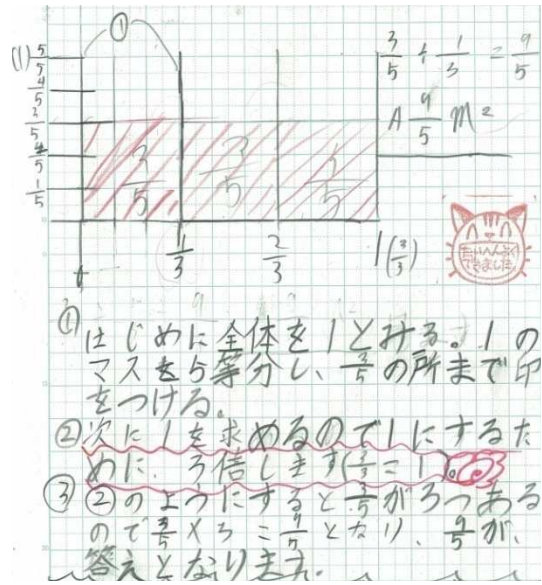 ①
(1) 5/5
4/5
3/5
1/5
3/5 3/5 3/5
1/3 2/3 1(3/3)
3/5 ÷ 1/3 = 9/5
A 9/5 m²
たいへんよく
できました
①はじめに全体を1とみる。1の
マスを5等分し、3/5の所まで印
をつける。
②次に1を求めるので1にするた
めに、3倍します(3/3=1)。
③②のようにすると3/5が3つある
ので3/5×3=9/5となり、9/5が、
答えとなります.